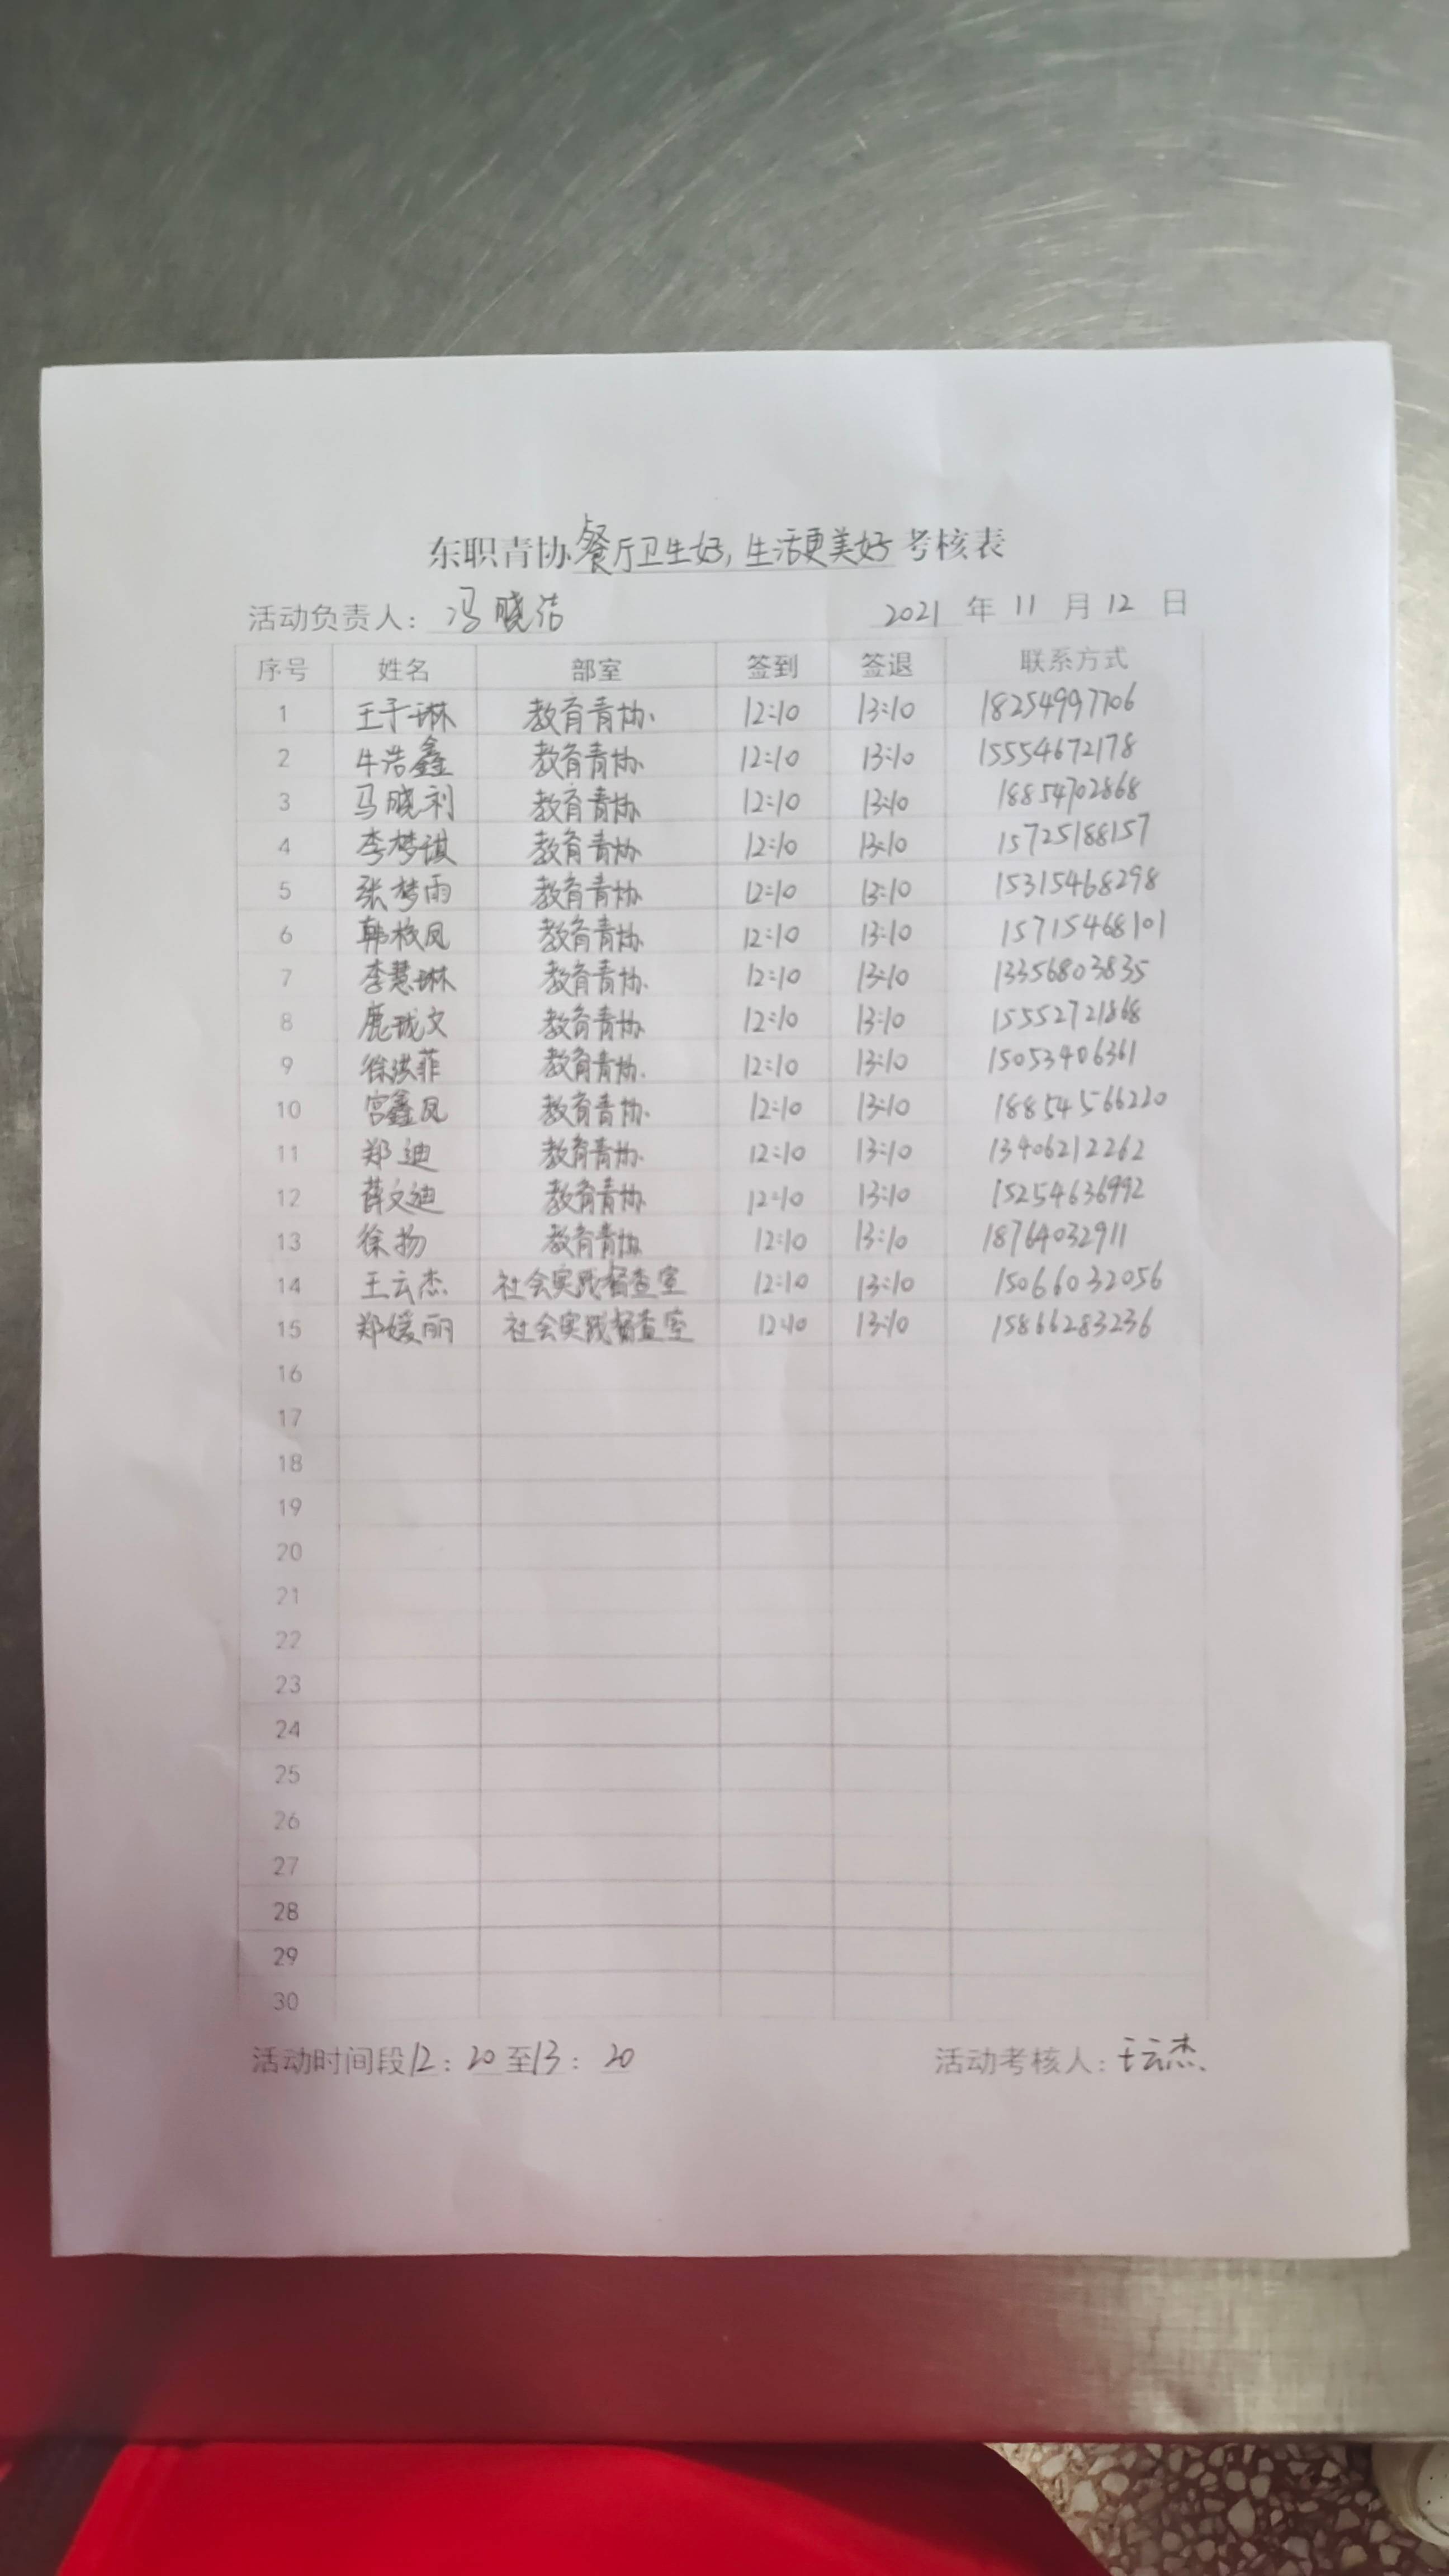 东职青协餐厅卫生好,生活更美好考核表
活动负责人: 冯晓洁 2021 年 11 月 12 日
序号 姓名 部室 签到 签退 联系方式
1 王予琳 教育青协 12:10 13:10 18254997706
2 牛浩鑫 教育青协 12:10 13:10 15554672178
3 马晓利 教育青协 12:10 13:10 18854702868
4 李梦琪 教育青协 12:10 13:10 15725188157
5 张梦雨 教育青协 12:10 13:10 15315468298
6 韩校凤 教育青协 12:10 13:10 15715468101
7 李慧琳 教育青协 12:10 13:10 13356803835
8 鹿珑文 教育青协 12:10 13:10 15552721868
9 徐洪菲 教育青协 12:10 13:10 15053406361
10 宫鑫凤 教育青协 12:10 13:10 18854566220
11 郑迪 教育青协 12:10 13:10 13406212262
12 薛文迪 教育青协 12:10 13:10 15254636992
13 徐扬 教育青协 12:10 13:10 18764032911
14 王云杰 社会实践督查室 12:10 13:10 15066032056
15 郑媛丽 社会实践督查室 12:10 13:10 15866283236
16
17
18
19
20
21
22
23
24
25
26
27
28
29
30
活动时间段12:20至13:20 活动考核人:王云杰